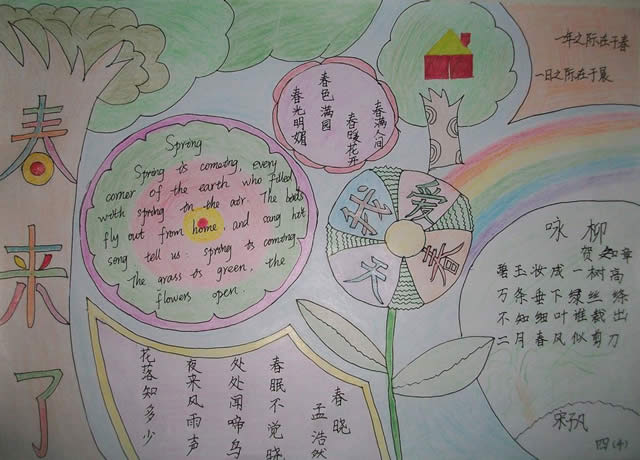 春来了
Spring
Spring is coming, every
corner of the earth who filled
with spring in the air. The birds
fly out from home, and sang hit
song tell us: spring is coming.
The grass is green, the
flowers open.
春满人间
春暖花开
春色满园
春光明媚
一年之际在于春
一日之际在于晨
我爱春天
咏柳
贺知章
碧玉妆成一树高
万条垂下绿丝绦
不知细叶谁裁出
二月春风似剪刀
春晓
孟浩然
春眠不觉晓
处处闻啼鸟
夜来风雨声
花落知多少